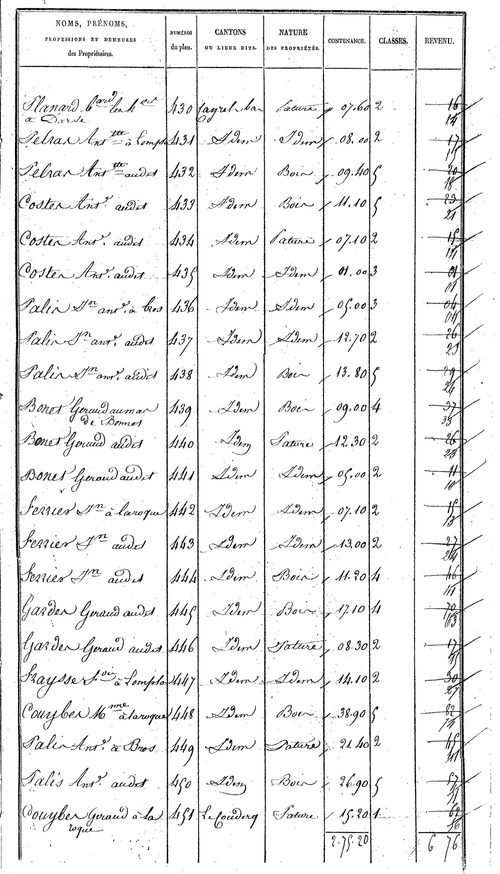 NOMS, PRÉNOMS,
PROFESSIONS ET DEMEURES
des Propriétaires.
NUMÉROS
du plan.
CANTONS
OU LIEUX DITS.
NATURE
DES PROPRIÉTÉS.
CONTENANCE.
CLASSES.
REVENU.
Planard 430 Pature 07.60 2 16
à
Pelras Ant à 431 Idem Idem 08.00 2 17
Pelras Ant audet 432 Idem Bois 09.40 5 20
18
Costes Ant. audet 433 Idem Bois 11.10 5 23
21
Costes Ant. audet 434 Idem Pature 07.10 2 15
Costes Ant. audet 435 Idem Idem 01.00 3 01
01
Palis Jn ant. à bros 436 Idem Idem 05.00 3 04
04
Palis Jn ant. audet 437 Idem Idem 12.70 2 26
23
Palis Jn ant. audet 438 Idem Bois 13.80 5 29
Bones Geraud 439 Idem Bois 09.00 4 37
de 33
Bones Geraud audet 440 Idem Pature 12.30 2 26
23
Bones Geraud audet 441 Idem Idem 05.00 2 11
10
Ferrier Jn à laroque 442 Idem Idem 07.10 2 15
13
Ferrier Jn audet 443 Idem Idem 13.00 2 27
24
Ferrier Jn audet 444 Idem Bois 11.20 4 46
41
Gardes Geraud audet 445 Idem Bois 17.10 4 70
63
Gardes Geraud audet 446 Idem Pature 08.30 2 17
15
Fraysse à 447 Idem Idem 14.10 2 30
27
Couybes à laroque 448 Idem Bois 38.90 5 82
Palis Ant. à Bros 449 Idem Pature 21.40 2 45
41
Palis Ant. audet 450 Idem Bois 26.90 5 57
Couybes Geraud à la 451 Le Couderq Pature 15.20 1 62
roque 56
2.75.20 6 76